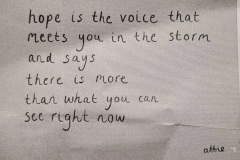 hope is the voice that
meets you in the storm
and says
there is more
than what you can
see right now